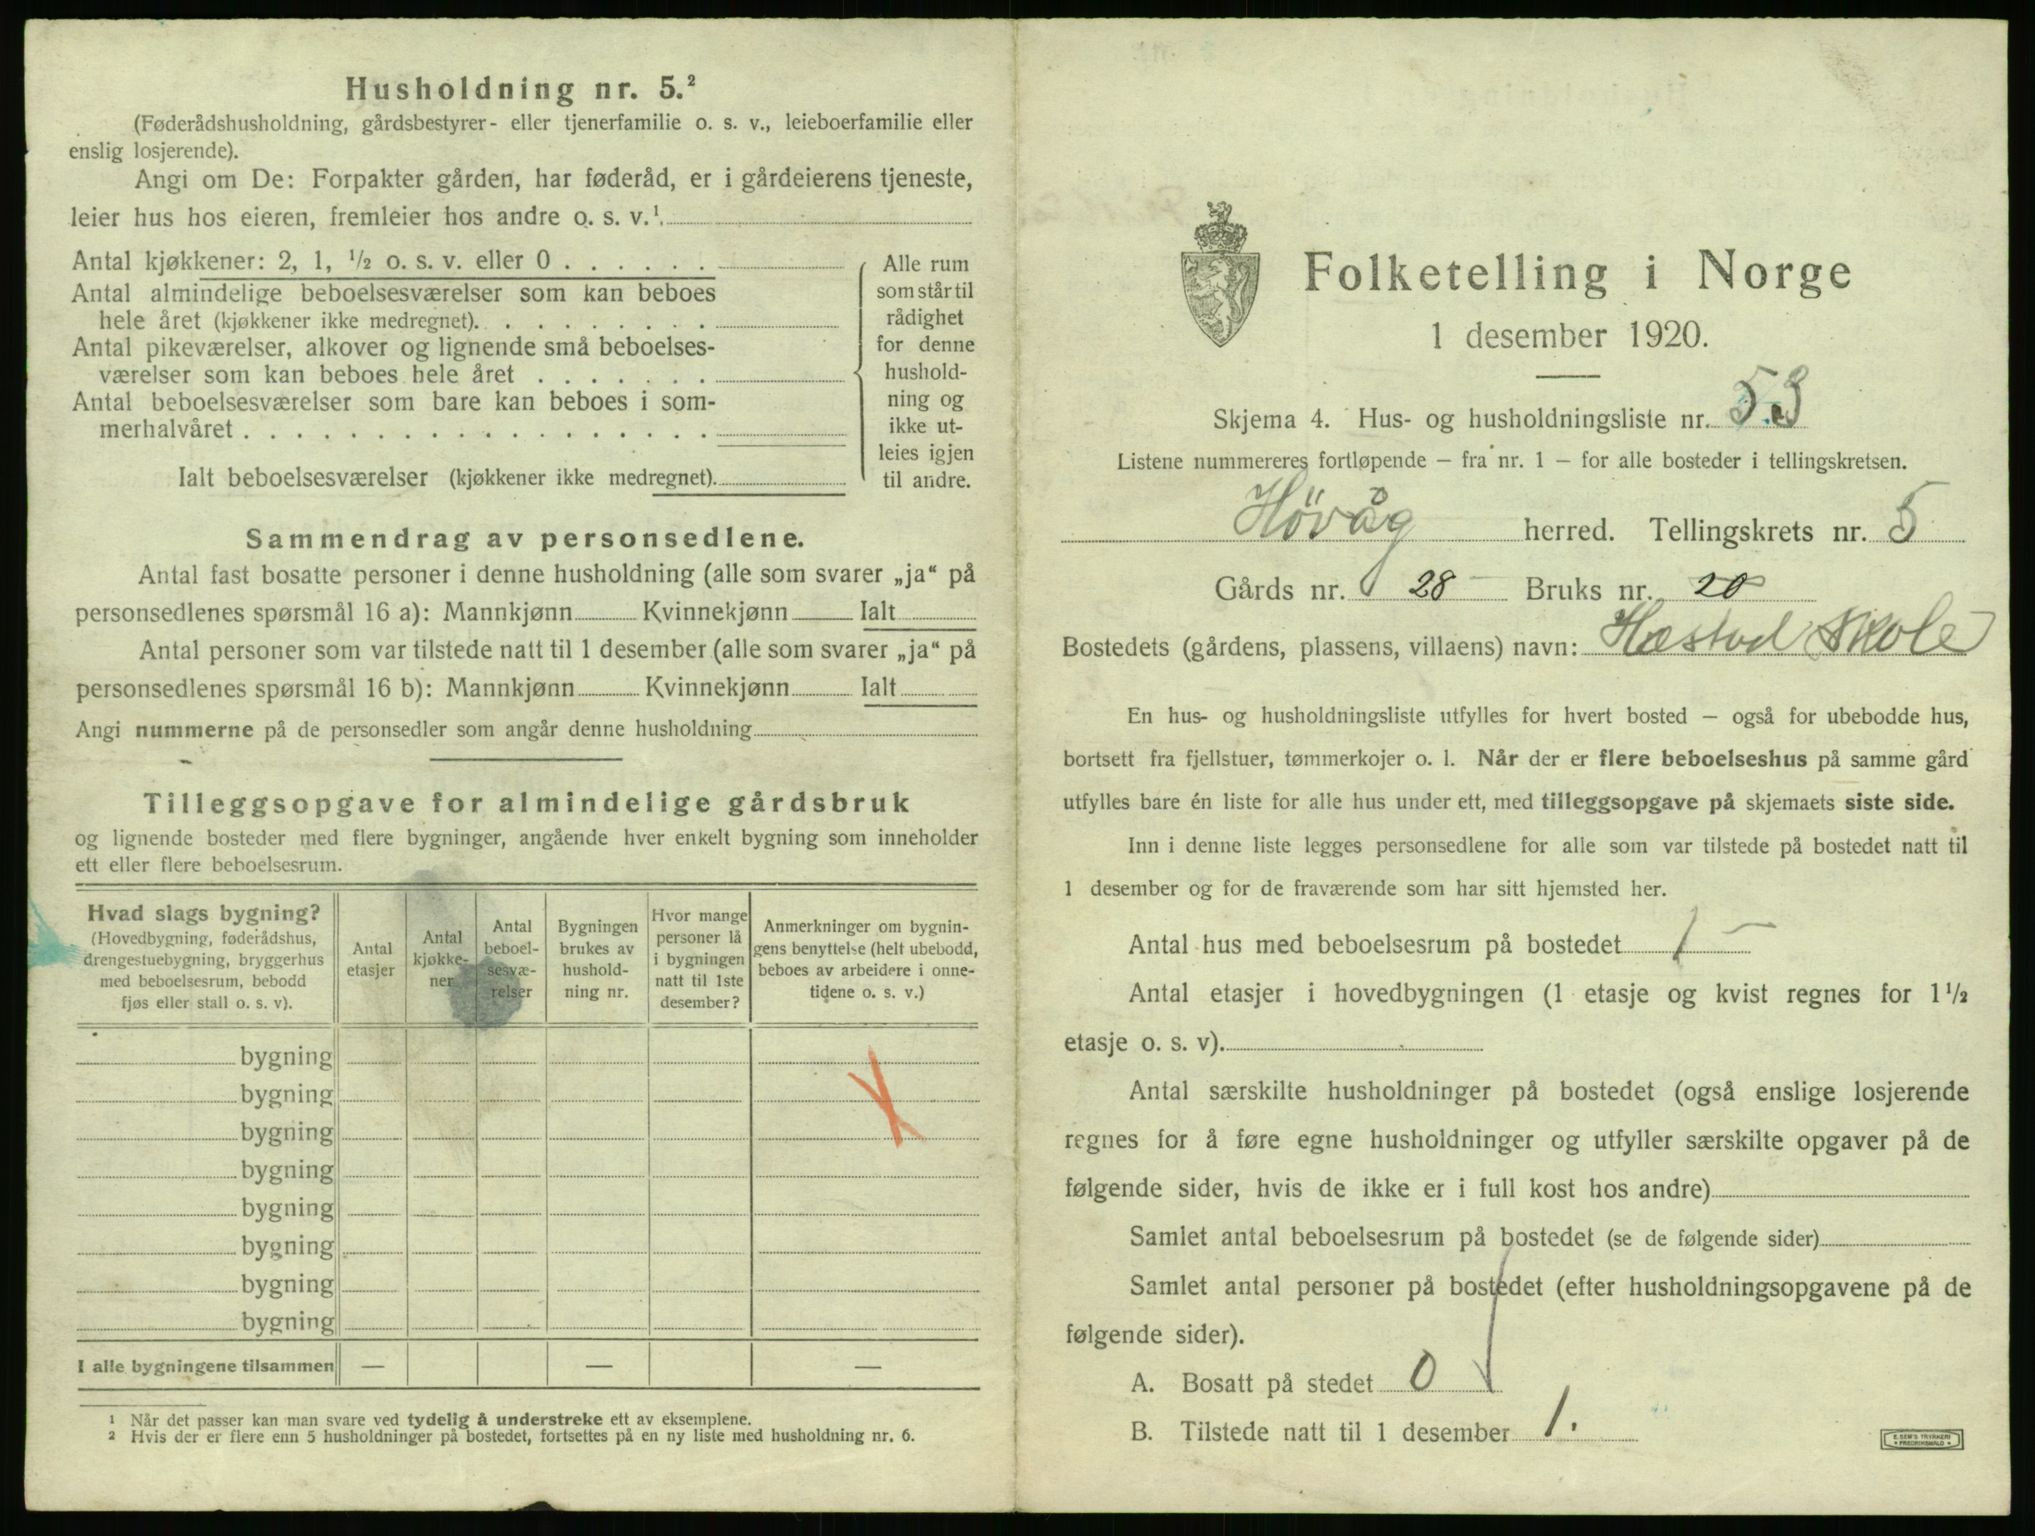 Husholdning nr. 5.²
(Føderådshusholdning, gårdsbestyrer- eller tjenerfamilie o. s. v., leieboerfamilie eller
enslig losjerende).
Angi om De: Forpakter gården, har føderåd, er i gårdeierens tjeneste,
leier hus hos eieren, fremleier hos andre o. s. v.¹.
Antal kjøkkener: 2, 1, ½ o. s. v. eller 0 . . . . . .
Antal almindelige beboelsesværelser som kan beboes
hele året (kjøkkener ikke medregnet). . . . . . . . .
Antal pikeværelser, alkover og lignende små beboelses-
værelser som kan beboes hele året . . . . . . .
Antal beboelsesværelser som bare kan beboes i som-
merhalvåret . . . . . . . . . . . . . . . . . .
Ialt beboelsesværelser (kjøkkener ikke medregnet).
Alle rum
som står til
rådighet
for denne
hushold-
ning og
ikke ut-
leies igjen
til andre.
Sammendrag av personsedlene.
Antal fast bosatte personer i denne husholdning (alle som svarer „ja“ på
personsedlenes spørsmål 16 a): Mannkjønn Kvinnekjønn Ialt
Antal personer som var tilstede natt til 1 desember (alle som svarer „ja“ på
personsedlenes spørsmål 16 b): Mannkjønn Kvinnekjønn Ialt
Angi nummerne på de personsedler som angår denne husholdning
Tilleggsopgave for almindelige gårdsbruk
og lignende bosteder med flere bygninger, angående hver enkelt bygning som inneholder
ett eller flere beboelsesrum.
Hvad slags bygning?
(Hovedbygning, føderådshus,
drengestuebygning, bryggerhus
med beboelsesrum, bebodd
fjøs eller stall o. s. v).
Antal
etasjer
Antal
kjøkke-
ner
Antal
beboel-
sesvæ-
relser
Bygningen
brukes av
hushold-
ning nr.
Hvor mange
personer lå
i bygningen
natt til 1ste
desember?
Anmerkninger om bygnin-
gens benyttelse (helt ubebodd,
beboes av arbeidere i onne-
tidene o. s. v.)
bygning
bygning
bygning
bygning
bygning
bygning
bygning
bygning
I alle bygningene tilsammen — — —
¹ Når det passer kan man svare ved tydelig å understreke ett av eksemplene.
² Hvis der er flere enn 5 husholdninger på bostedet, fortsettes på en ny liste med husholdning nr. 6.
Folketelling i Norge
1 desember 1920.
Skjema 4. Hus- og husholdningsliste nr. 53
Listene nummereres fortløpende – fra nr. 1 – for alle bosteder i tellingskretsen.
Høvåg herred. Tellingskrets nr. 5
Gårds nr. 28 Bruks nr. 20
Bostedets (gårdens, plassens, villaens) navn: Hæstad Skole
En hus- og husholdningsliste utfylles for hvert bosted – også for ubebodde hus,
bortsett fra fjellstuer, tømmerkojer o. l. Når der er flere beboelseshus på samme gård
utfylles bare én liste for alle hus under ett, med tilleggsopgave på skjemaets siste side.
Inn i denne liste legges personsedlene for alle som var tilstede på bostedet natt til
1 desember og for de fraværende som har sitt hjemsted her.
Antal hus med beboelsesrum på bostedet 1 –
Antal etasjer i hovedbygningen (1 etasje og kvist regnes for 1½
etasje o. s. v).
Antal særskilte husholdninger på bostedet (også enslige losjerende
regnes for å føre egne husholdninger og utfyller særskilte opgaver på de
følgende sider, hvis de ikke er i full kost hos andre)
Samlet antal beboelsesrum på bostedet (se de følgende sider)
Samlet antal personer på bostedet (efter husholdningsopgavene på de
følgende sider).
A. Bosatt på stedet 0
B. Tilstede natt til 1 desember 1.
E. SEM'S TRYKKERI
• FREDRIKSHALD •